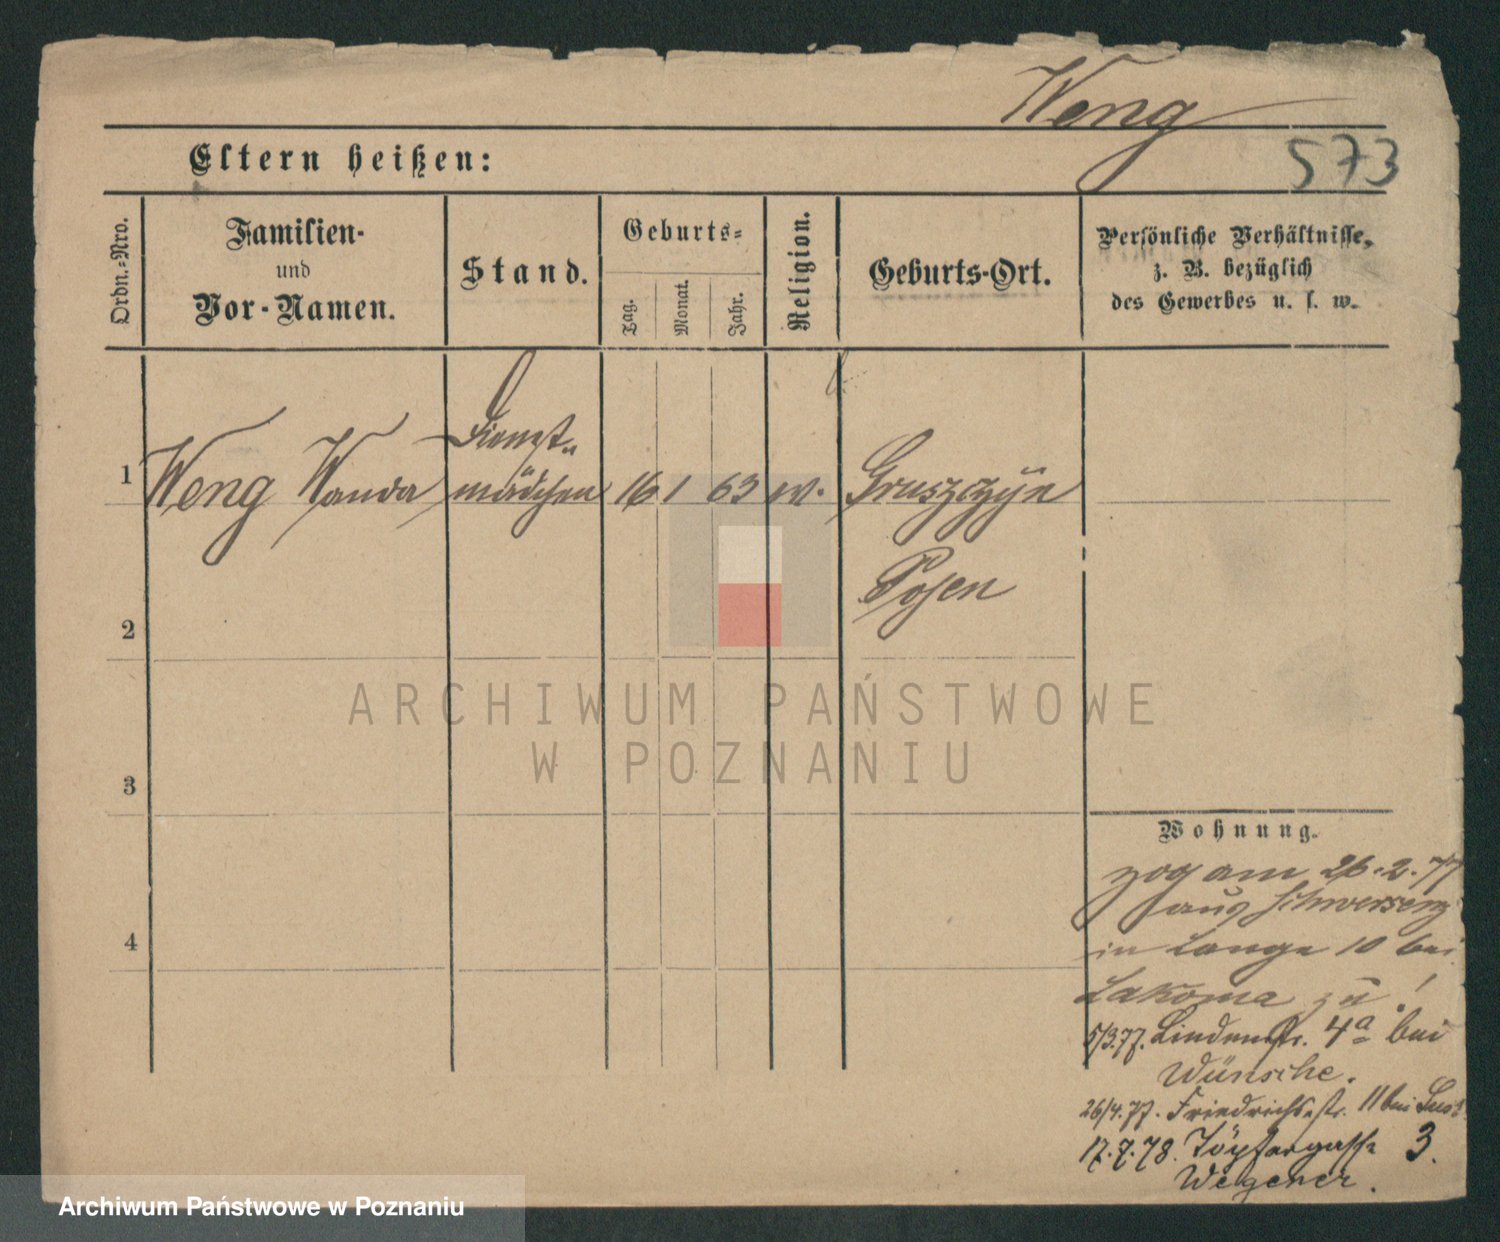 Weng
573
Eltern heißen:
Ordn.-Nro.
Familien-
und
Vor-Namen.
Stand.
Geburts-
Tag.
Monat.
Jahr.
Religion.
Geburts-Ort.
Persönliche Verhältnisse,
z. B. bezüglich
des Gewerbes u. s. w.
1 Weng Wanda
Dienst-
mädchen
16 1 63
Gruszczyn
Posen
2
3
4
ARCHIWUM PAŃSTWOWE
W POZNANIU
Wohnung.
zog am 26.2.77
aus Schwersenz
in Lange 10 bei
Lakoma zu!
5/3.77. Lindenstr. 4a bei
Wünsche.
26/4.77. Friedrichsstr. 11 bei
17.7.78. Töpfergasse 3.
Wegener.
Archiwum Państwowe w Poznaniu